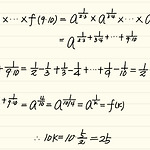 × ⋯ × f(9·10) = a^{\frac{1}{2·3}} × a^{\frac{1}{3·4}} × ⋯ × a
= a^{\frac{1}{2·3}+\frac{1}{3·4}+⋯+\frac{1}{9·10}}
+ \frac{1}{9·10} = \frac{1}{2} - \frac{1}{3} + \frac{1}{3} - \frac{1}{4} + ⋯ + \frac{1}{9} - \frac{1}{10} = \frac{1}{2}
⋯ + \frac{1}{9·10} = a^{\frac{4}{10}} = a^{\frac{1}{10/4}} = a^{\frac{1}{k}} = f(k)
∴ 10k = 10 \frac{5}{2} = 25